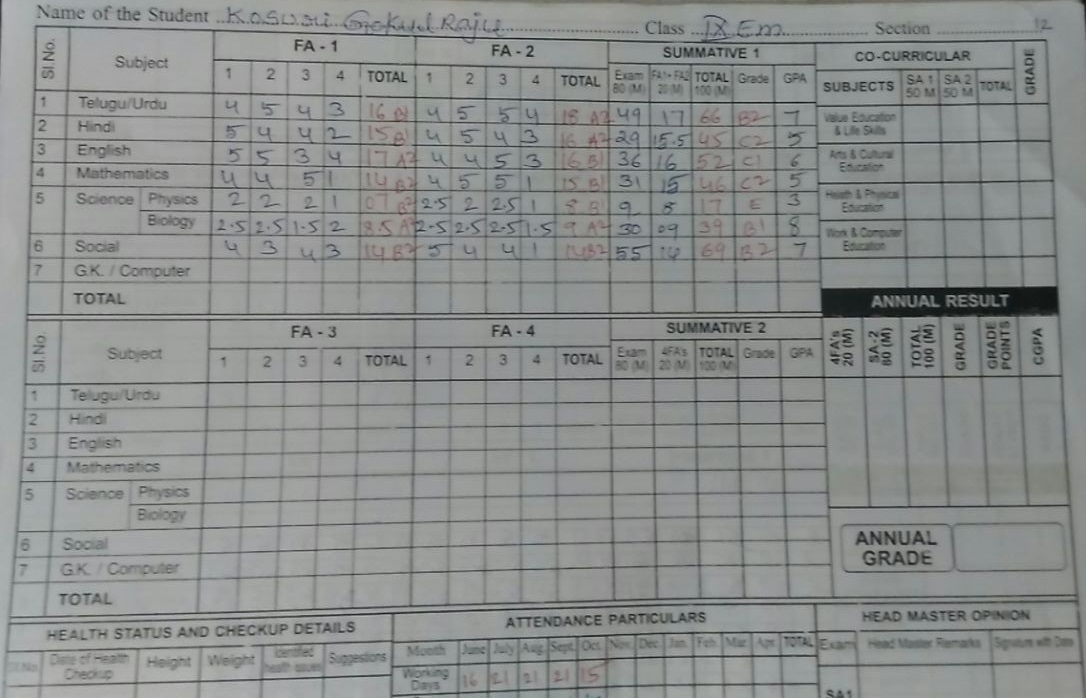 Name of the Student Kosuri Gokul Raju Class IX Em Section 12
Sl No. Subject FA - 1 FA - 2 SUMMATIVE 1 CO-CURRICULAR GRADE
1 2 3 4 TOTAL 1 2 3 4 TOTAL Exam 80 (M) FA1+ FA2 20 (M) TOTAL 100 (M) Grade GPA SUBJECTS SA 1 50 M SA 2 50 M TOTAL
1 Telugu/Urdu 4 5 4 3 16 B1 4 5 5 4 18 A2 49 17 66 B2 7 Value Education & Life Skills
2 Hindi 5 4 4 2 15 B1 4 5 4 3 16 A2 29 15.5 45 C2 5
3 English 5 5 3 4 17 A2 4 4 5 3 16 B1 36 16 52 C1 6 Arts & Cultural Education
4 Mathematics 4 4 5 1 14 B2 4 5 5 1 15 B1 31 15 46 C2 5
5 Science Physics 2 2 2 1 07 B2 2.5 2 2.5 1 8 B1 9 8 17 E 3 Health & Physical Education
Biology 2.5 2.5 1.5 2 8.5 A2 2.5 2.5 2.5 1.5 9 A2 30 09 39 B1 8 Work & Computer Education
6 Social 4 3 4 3 14 B2 5 4 4 1 14 B2 55 14 69 B2 7
7 G.K. / Computer
TOTAL ANNUAL RESULT
Sl.No. Subject FA - 3 FA - 4 SUMMATIVE 2 4FA's 20 (M) SA-2 80 (M) TOTAL 100 (M) GRADE GRADE POINTS CGPA
1 2 3 4 TOTAL 1 2 3 4 TOTAL Exam 80 (M) 4FA's 20 (M) TOTAL 100 (M) Grade GPA
1 Telugu/Urdu
2 Hindi
3 English
4 Mathematics
5 Science Physics
Biology
6 Social
7 G.K. / Computer
TOTAL
ANNUAL GRADE
HEALTH STATUS AND CHECKUP DETAILS ATTENDANCE PARTICULARS HEAD MASTER OPINION
Sl.No. Date of Health Checkup Height Weight Identified health issues Suggestions Month June July Aug Sept Oct Nov Dec Jan Feb Mar Apr TOTAL Exam Head Master Remarks Signature with Date
Working Days 16 21 21 21 15 SA1